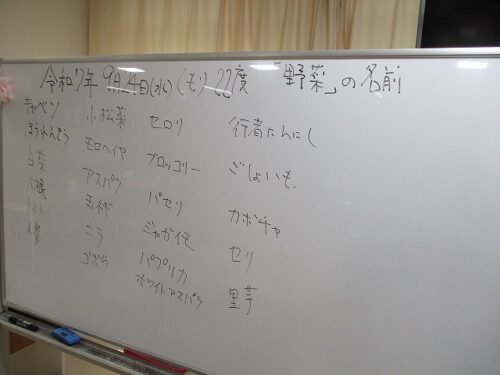 令和7年 9月24日(水) (もり) 22度 「野菜」の名前
キャベツ
ほうれんそう
白菜
大根
トマト
人参
小松菜
モロヘイヤ
アスパラ
玉ネギ
ニラ
ゴボウ
セロリ
ブロッコリー
パセリ
ジャガイモ
パプリカ
ホワイトアスパラ
行者にんにく
ごしょいも
カボチャ
セリ
里芋